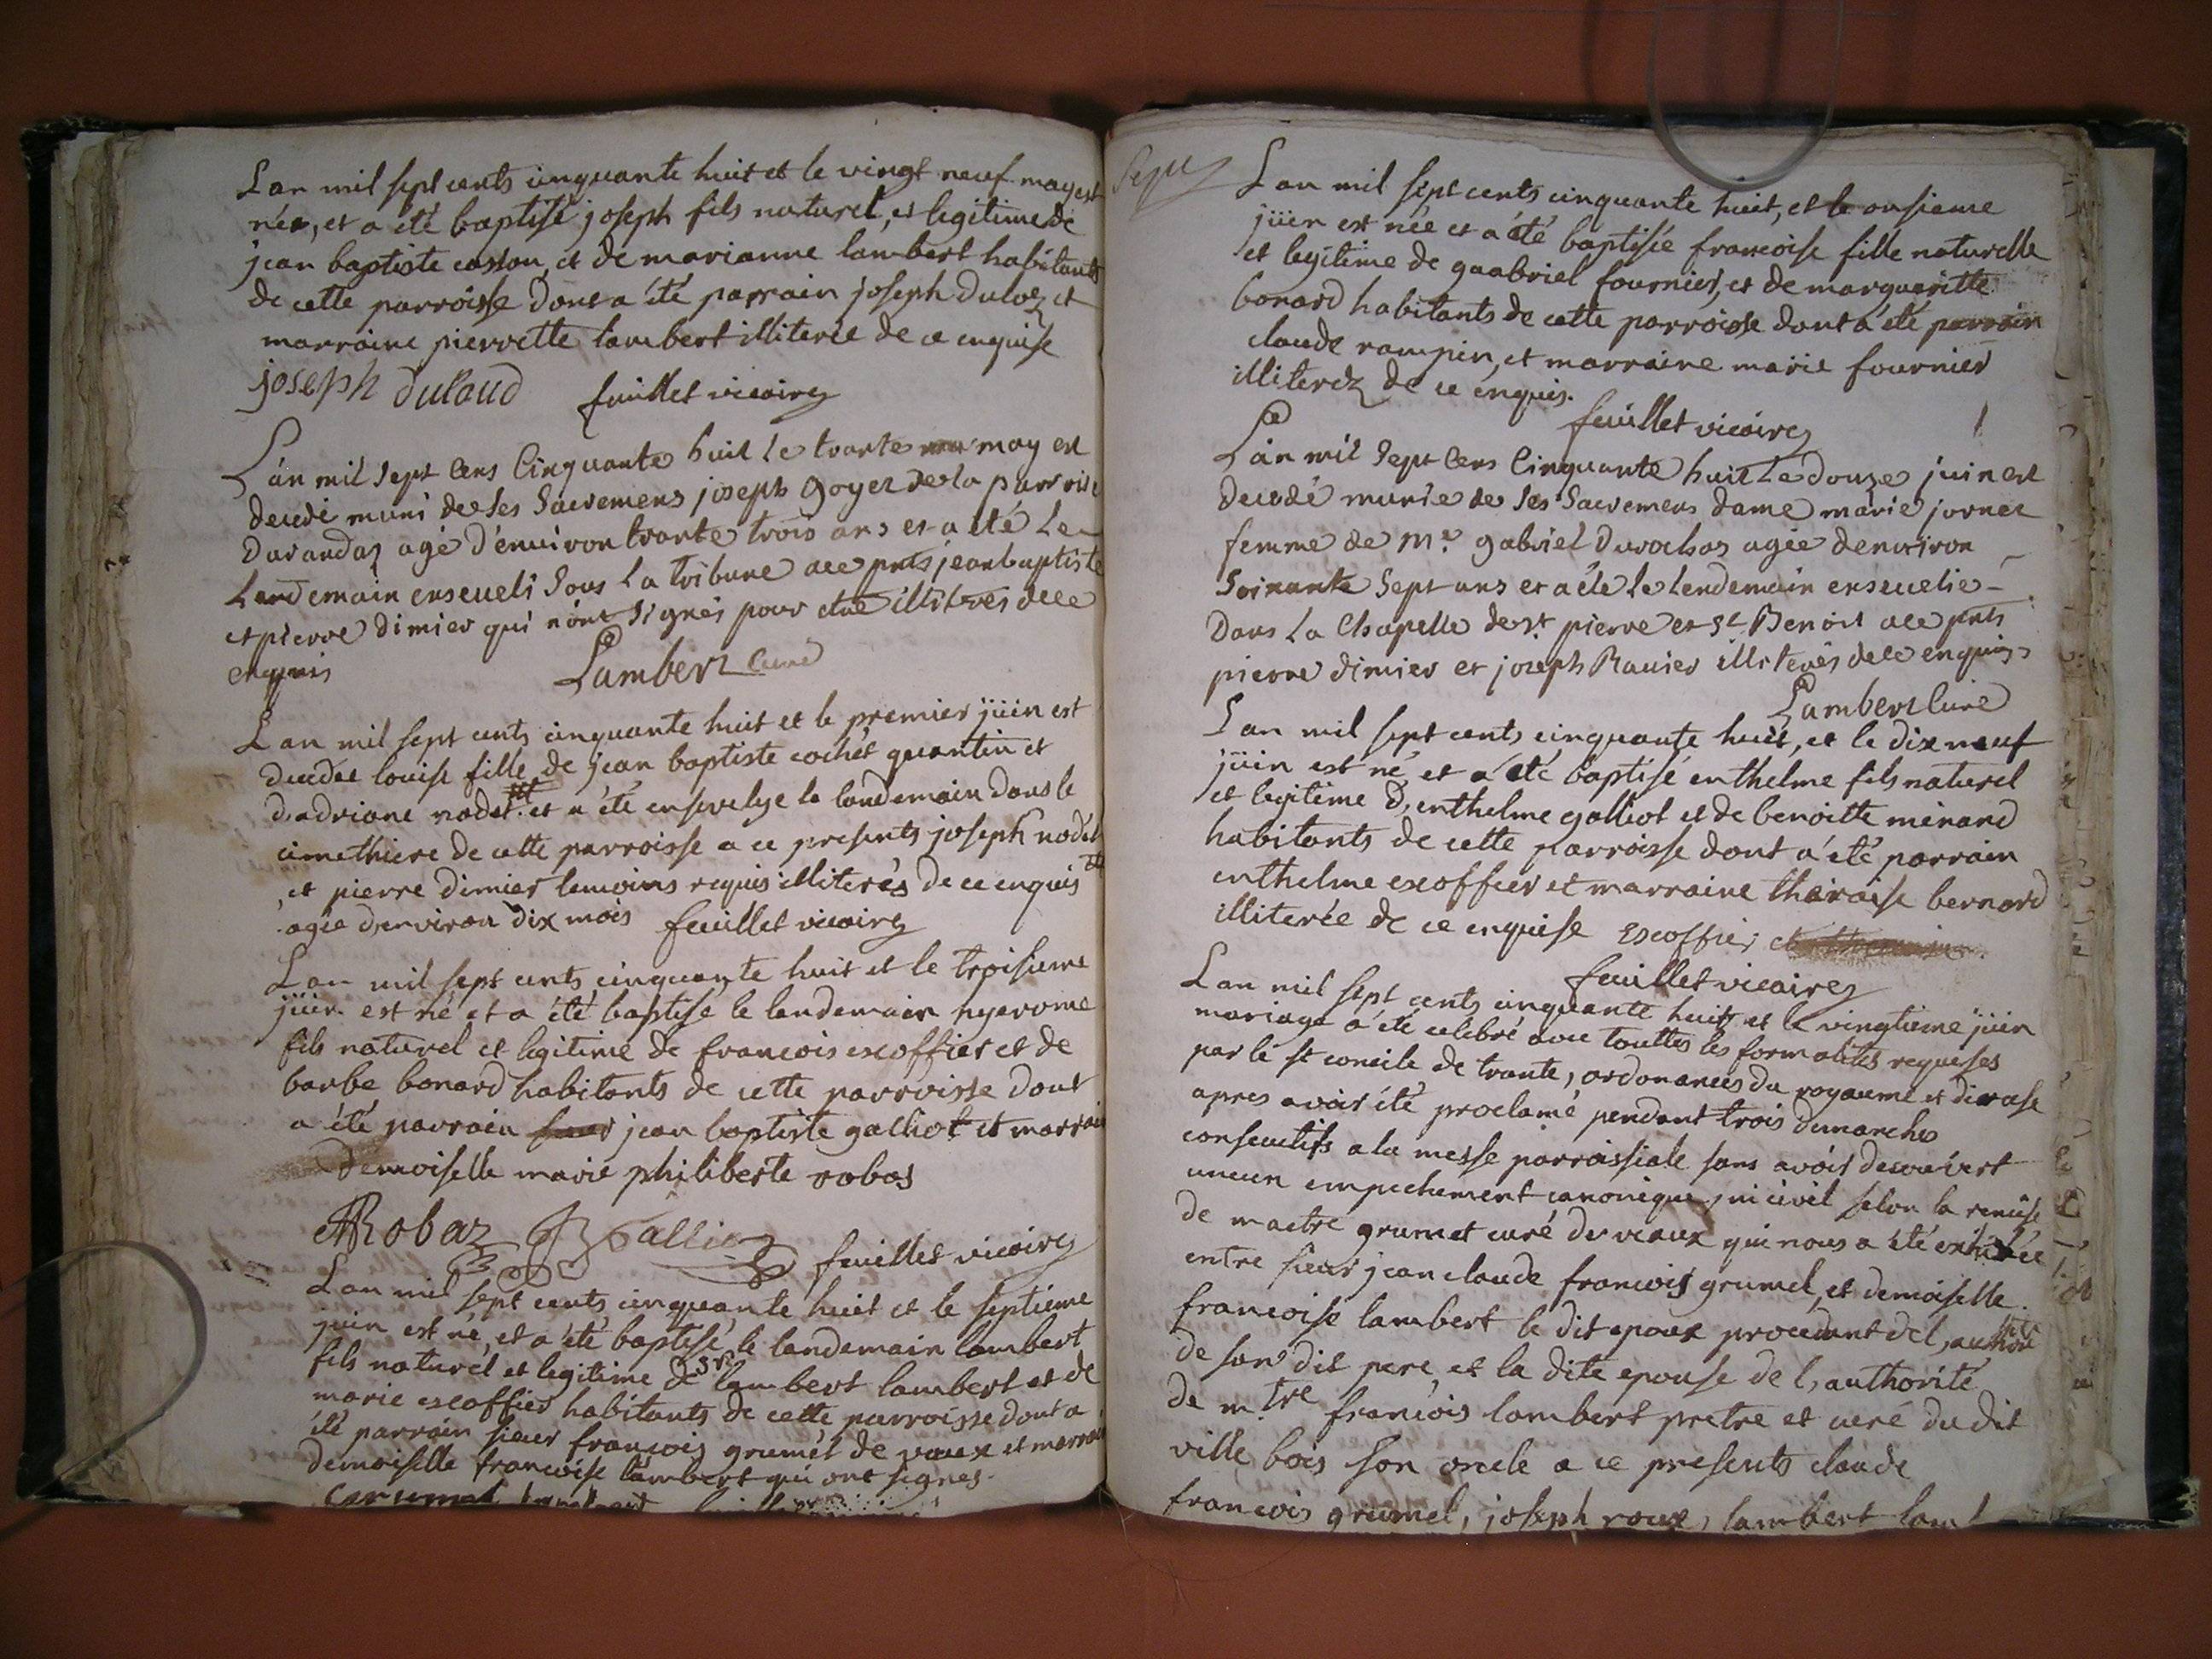 Lan mil sept cents cinquante huit et le vingt neuf may est
née, et a été baptisé joseph fils naturel, et legitime de
jean baptiste coston, et de marianne lambert habitants
de cette parroisse dont a été parrain joseph duloz et
marraine pierrette lambert illiterée de ce enquise
joseph dulaud feuillet vicaire
L'an mil sept cens Cinquante huit le trante may est
decedé muni de ses Sacremens joseph goyet de la parroise
Darandaz agé d'environ trante trois ans et a eté Le
Lendemain enseveli Sous La tribune a ce pnts jean baptiste
et pierre dimier qui n'ont signés pour etre illitrés de ce
enquis Lambert Curé
Lan mil sept cents cinquante huit et le premier juin est
decedée louise fille de jean baptiste cochet quantin et
dadriane nodet et a été ensevelye le landemain dans le
cimethiere de cette parroisse a ce presents joseph nodet
, et pierre dimier temoins requis illiterés de ce enquis
agée denviron dix mois feuillet vicaire
Lan mil sept cents cinquante huit et le troisieme
juin est né et a été baptisé le landemain hyerome
fils naturel et legitime de francois escoffier et de
barbe bonard habitants de cette parroisse dont
a été parrain jean baptiste galliot et marrain
demoiselle marie philiberte robas
Robaz JB Galliot feuillet vicaire
Lan mil sept cents cinquante huit et le septieme
juin est né, et a été baptisé le landemain lambert
fils naturel et legitime de sr lambert lambert et de
marie escoffier habitants de cette parroisse dont a
été parrain sieur francois grumet de vaux et marrain
demoiselle francoise lambert qui ont signes.
Sepu
Lan mil sept cents cinquante huit, et le onsieme
juin est née et a été baptisée francoise fille naturelle
et legitime de gaabriel fournier, et de margueritte
bonard habitants de cette parroisse dont a été parrain
claude rampin, et marraine marie fournier
illiterez de ce enquis.
feuillet vicaire
L'an mil Sept Cens Cinquante huit Le douze juin est
decedé munie de Ses Sacremens dame marie jornet
femme de Me. gabriel Durochat agée denviron
Soixante Sept ans et a été Le Lendemain ensevelie
Dans La Chapelle de st. pierre et St Benoit a ce pnts
pierre dimier et joseph Ravier illiterés de ce enquis
Lambert Curé
Lan mil sept cents cinquante huit, et le dix neuf
juin est né et a été baptisé enthelme fils naturel
et legitime d,enthelme galliot et de benoitte menand
habitants de cette parroisse dont a été parrain
enthelme escoffier et marraine theraise bernard
illiterée de ce enquise Escoffier
feuillet vicaire
Lan mil sept cents cinquante huit, et le vingtieme juin
mariage a été celebré avec touttes les formalités requises
par le st concile de trante, ordonances du royaume et diocese
apres avoir été proclamé pendant trois dimanches
consecutifs a la messe parroissiale sans avoir decouvert
aucun empechement canonique, ni civil selon la remise
de maetre grumet curé de vaux qui nous a été exhibée
entre sieur jean claude francois grumel, et demoiselle
francoise lambert le dit epoux procedant de l,authorité
de son dit pere, et la dite epouse de l,authorité
de m.tre francois lambert pretre et curé du dit
ville bois son oncle a ce presents claude
francois grumel, joseph roux, lambert